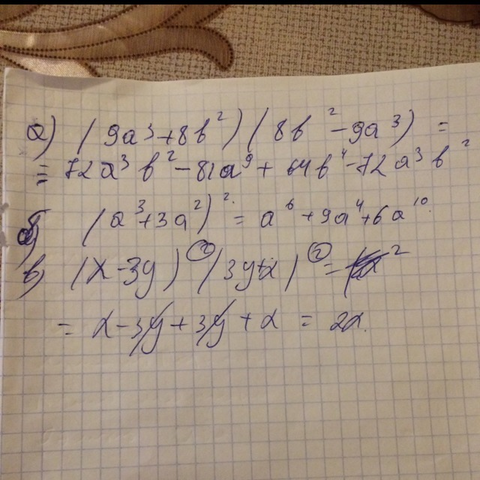 а) (9a³+8b²)(8b²-9a³) =
= 72a³b²-81a⁹+64b⁴-72a³b²
б) (a³+3a²)² = a⁶+9a⁴+6a¹⁰.
в) (x-3y)²(3y+x)² =
= x-3y+3y+x = 2x.